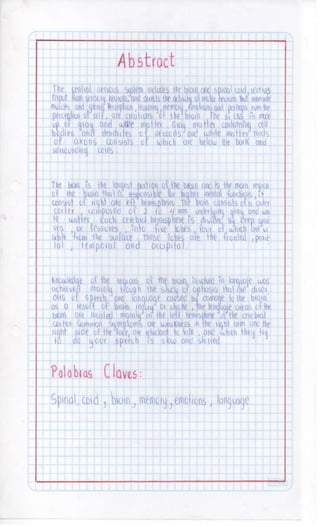 Abstract
The central nervous system includes the brain and spinal cord, receives
input from sensory nervous, and directs the activity of motor nervous that innervate
muscles and glands. Perception, learning, memory, emotions and perhaps even the
perception of self, are creations of the brain. The is made
up of gray and white matter. Grey matter containing cell
bodies and dendrites of neurons and white matter tracts
of axons consists of which are below the bark and
surrounding cores.
The brain is the largest portion of the brain and is the main region
of the brain that is responsible for higher mental functions, it
consist of right and left hemispheres. The brain consists of a outer
carter, composed of 2 to 4 mm underlying gray and whi
te matter. Each cerebral hemisphere is divided by deep gro
ves, or fissures, into five lobes, four of which are vi
sible from the surface, these lobes are the frontal, parie
tal, temporal and occipital.
Knowledge of the regions of the brain involved in language was
achieved mainly trough the study of aphasia that are disor
ders of speech and language caused by damage to the brain
as a result of brain injury or stroke, The language areas of the
brain are located mainly in the left hemisphere of the cerebral
cortex. Common symptoms are weakness in the right arm and the
right side of the face, are reluctant to talk, and when they try
to do your speech is slow and slurred.
Palabras Claves:
Spinal cord, brain, memory, emotions, language